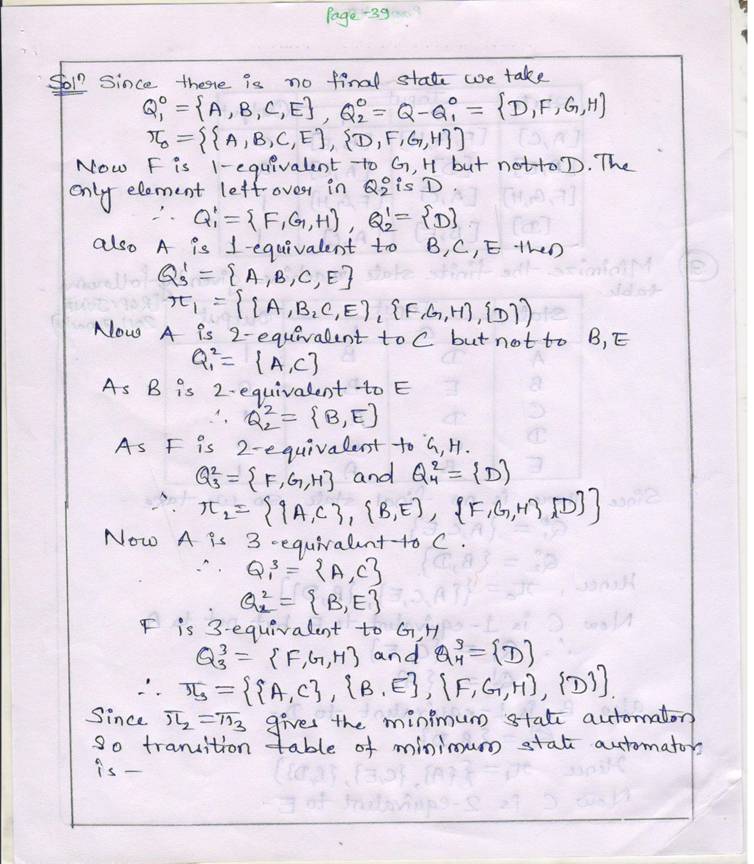 Page-39
Solⁿ Since there is no final state we take
Q₁⁰ = {A, B, C, E}, Q₂⁰ = Q - Q₁⁰ = {D, F, G, H}
π₀ = {{A, B, C, E}, {D, F, G, H}}
Now F is 1-equivalent to G, H but not to D. The
only element left over in Q₂⁰ is D.
∴ Q₁¹ = {F, G, H}, Q₂¹ = {D}
also A is 1-equivalent to B, C, E then
Q₃¹ = {A, B, C, E}
π₁ = {{A, B, C, E}, {F, G, H}, {D}}
Now A is 2-equivalent to C but not to B, E
Q₁² = {A, C}
As B is 2-equivalent to E
∴ Q₂² = {B, E}
As F is 2-equivalent to G, H.
Q₃² = {F, G, H} and Q₄² = {D}
∴ π₂ = {{A, C}, {B, E}, {F, G, H} {D}}
Now A is 3-equivalent to C.
∴ Q₁³ = {A, C}
Q₂² = {B, E}
F is 3-equivalent to G, H
Q₃³ = {F, G, H} and Q₄³ = {D}
∴ π₃ = {{A, C}, {B. E}, {F, G, H}, {D}}.
Since π₂ = π₃ gives the minimum state automaton
So transition table of minimum state automaton
is –